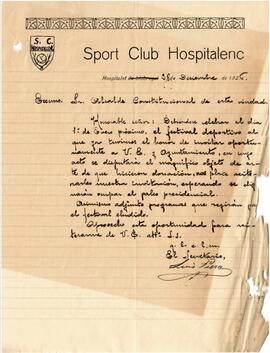 S. C.
HOSPITALENC
Sport Club Hospitalenc
Hospitalet 28 de Diciembre de 192
Excmo. Sr. Alcalde Constitucional de esta ciudad
Honorable señor: Debiendo celebrar el dia
1º de Enero próximo, el festival deportivo al
que ya tuvimos el honor de invitar oportu-
namente a V. E. y Ayuntamiento, en cuyo
acto se disputará el magnífico objeto de ar-
te de que hicieron donación, nos place reite-
rarles nuestra invitación, esperando se dig-
narán ocupar el palco presidencial.
Asimismo adjunto programas que regirán para
el festival aludido.
Aprovecho esta oportunidad para rei-
terarme de V. E. attº. S.S.
q. b. s. m.
El Secretario,